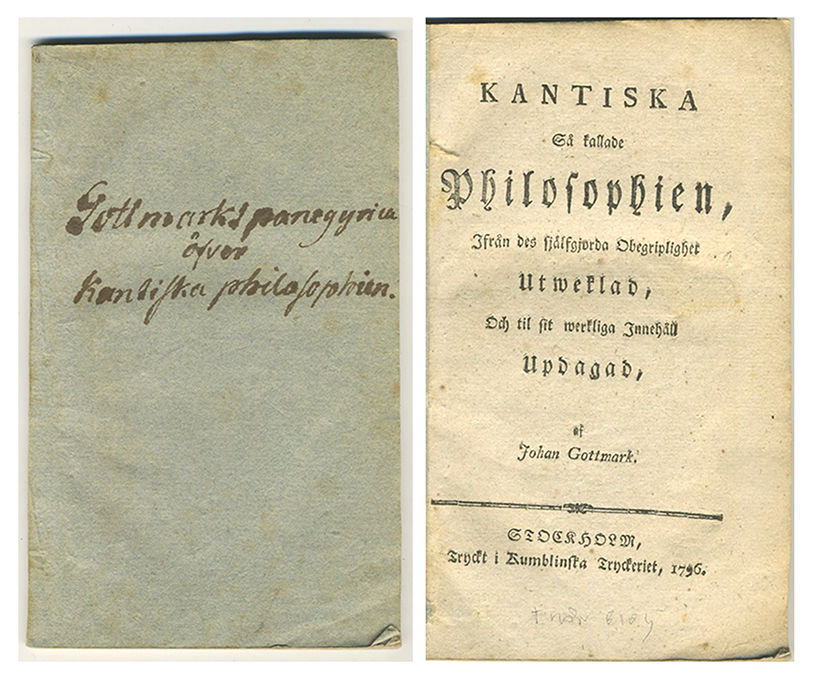 Gottmarks panegyrica
öfver
Kantiska philosophien.
KANTISKA
Så kallade
Philosophien,
Ifrån des sjelfgjorda Obegriplighet
Utweklad,
Och til sit werkliga Innehåll
Updagad,
af
Johan Gottmark.
STOCKHOLM,
Tryckt i Kumblinska Tryckeriet, 1796.